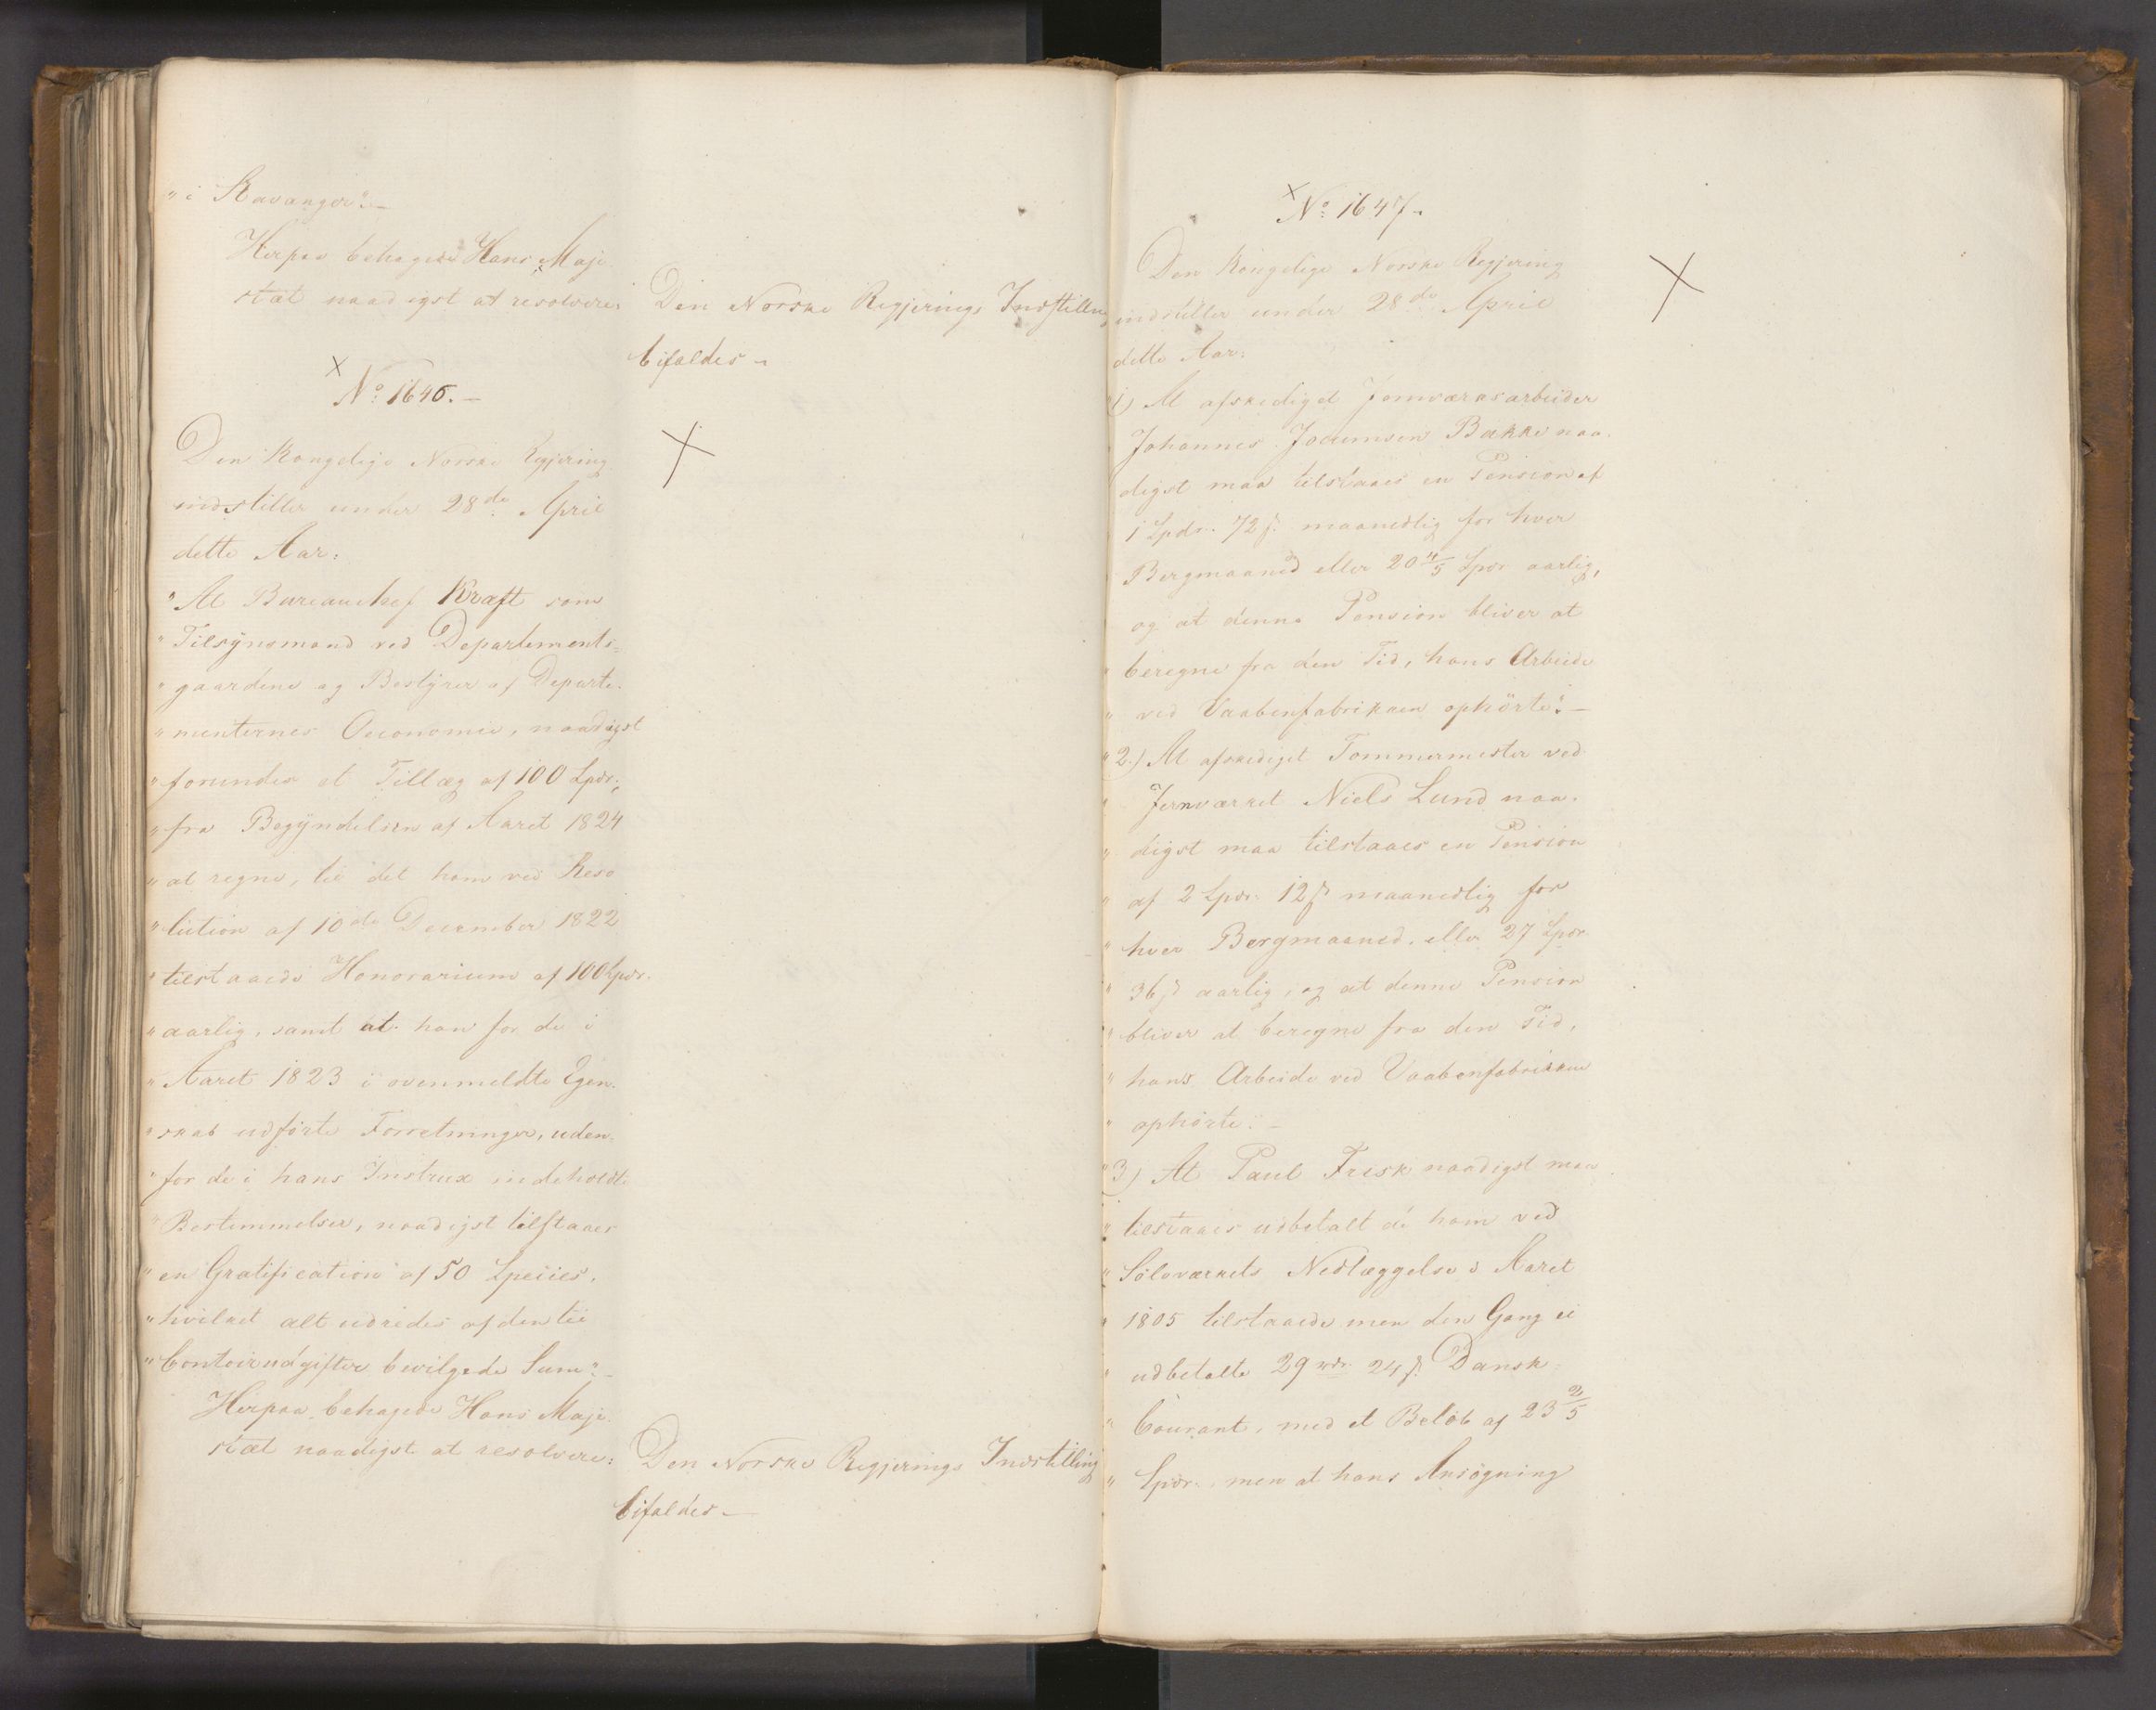 "i Stavanger".—
Herpaa behagede Hans Maje-
stæt naadigst at resolvere:
Den Norske Regjerings Indstilling
bifaldes.
× No: 1646.—
Den Kongelige Norske Regjering
indstiller under 28de April
dette Aar:
"At Bureauchef Kraft som
"Tilsynsmand ved Departements-
"gaardene og Bestyrer af Departe-
"menternes Oeconomie, naadigst
"forundes et Tillæg af 100 Spdr.,
"fra Begyndelsen af Aaret 1824
"at regne, til det ham ved Reso
"lution af 10de December 1822
"tilstaaede Honorarium af 100 Spdr.
"aarlig, samt at han for de i
"Aaret 1823 i ovenmeldte Egen-
"skab udførte Forretninger, uden-
"for de i hans Instrux indeholdte
"Bestemmelser, naadigst tilstaaes
"en Gratification af 50 Species,
"hvilket alt udredes af den til
"Contoirudgifter bevilgede Sum".—
Herpaa behagede Hans Maje-
stæt naadigst at resolvere:
Den Norske Regjerings Indstilling
bifaldes.—
× No: 1647.
Den Kongelige Norske Regjering
indstiller under 28de April
dette Aar:
"1) At afskediget Jernværksarbeider
Johannes Jocumsen Bakke naa-
digst maa tilstaaes en Pension af
1 Spdr. 72 ß. maanedlig for hver
Bergmaaned eller 20 4/5 Spdr aarlig,
og at denne Pension bliver at
"beregne fra den Tid, hans Arbeide
"ved Vaabenfabrikken ophörte".—
"2.) At afskediget Tømmermester ved
"Jernværket Niels Lund naa-
"digst maa tilstaaes en Pension
"af 2 Spdr. 12 ß maanedlig for
"hver Bergmaaned, eller 27 Spdr
"36 ß aarlig, og at denne Pension
"bliver at beregne fra den Tid,
"hans Arbeide ved Vaabenfabrikken
"ophörte.—
"3) At Paul Frisk naadigst maa
"tilstaaes udbetalt de ham ved
"Sölvværkets Nedlæggelse i Aaret
"1805 tilstaaede men den Gang ei
"udbetalte 29 rdr. 24 ß. Dansk
"Courant, med et Beløb af 23 2/5
"Spdr. men at hans Ansögning